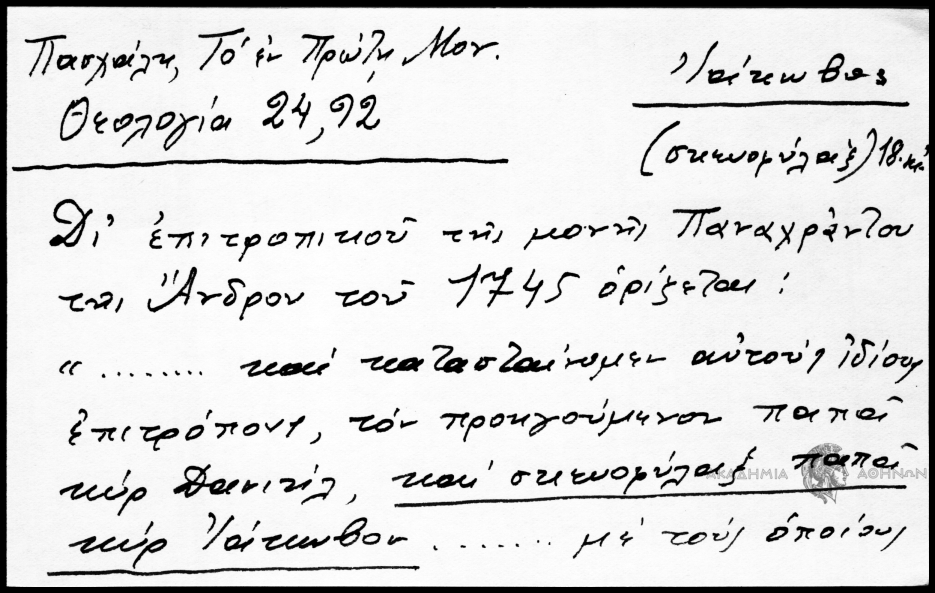 Πασχάλη, Τό ἐν Πρώτη Μον.
Θεολογία 24, 92
Ἰάκωβος
(σκευοφύλαξ) 18. κἑ.
Δι' ἐπιτροπικοῦ τῆς μονῆς Παναχράντου
τῆς Ἄνδρου τοῦ 1745 ὁρίζεται :
" ........ καί κατασταίνομεν αὐτούς ἰδίους
ἐπιτρόπους, τόν προηγούμενον παπᾶ
κύρ Δανιήλ, καί σκευοφύλαξ παπᾶ
κύρ Ἰάκωβον ....... μέ τούς ὁποίους
ΑΚΑΔΗΜΙΑ ΑΘΗΝΩΝ